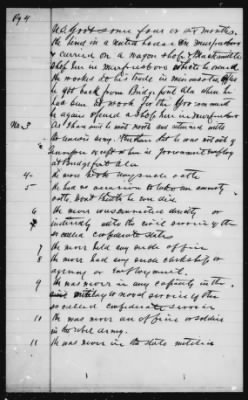 Pg 4
US Govt some four or six months.
He lived in a rented house in Murfreesboro
& carried on a wagon shop & Blacksmith
shop here in Murfreesboro where he owned
he worked at his trade in
he got back from Bridgeport Ala when he
had been to work for the Government
he again opened a shop here in Murfreesboro
No. 3
As I have said he went north and returned with
the Union army. Further that he was not out of
except when in Government employ
at Bridgeport Ala
4 He never took any such oath
5 He had no occasion to take an amnesty
oath, don't think he ever did.
6 He never was connected directly or
indirectly with the civil service of the
so called confederate states
7 He never held any such office
8 He never had any such clerkship or
agency or employment.
9 He was never in any capacity in the
military or naval service of the
so called confederate service
10 He was never an officer or soldier
in the rebel army.
11 He was never in the state militia